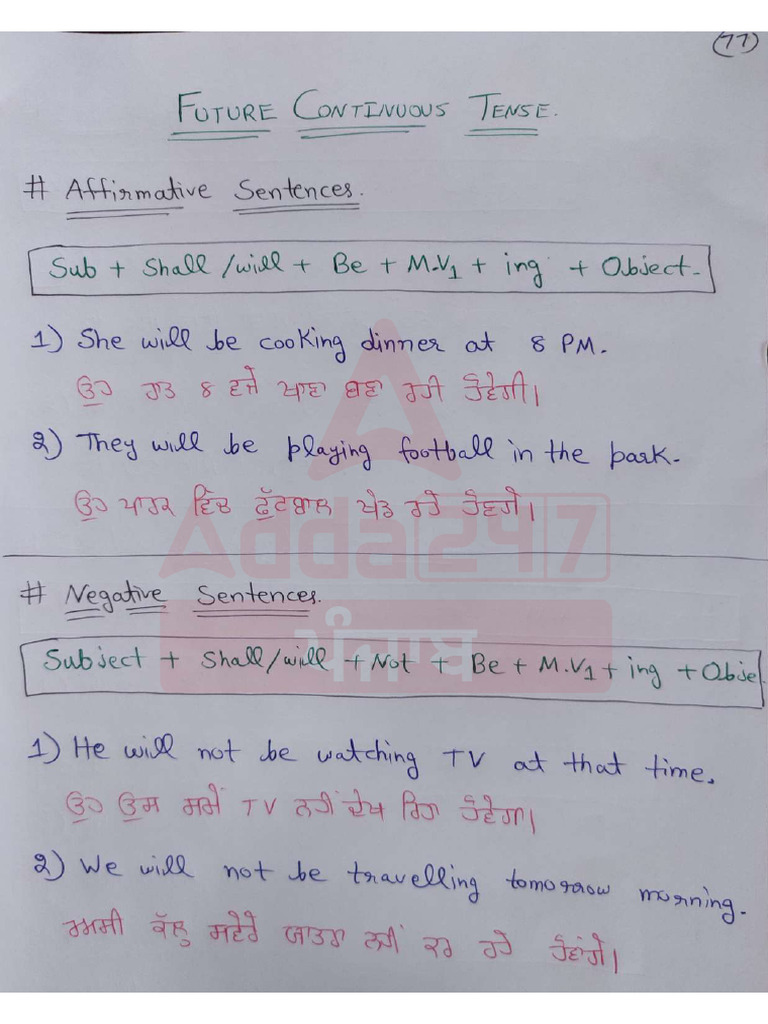 77
FUTURE CONTINUOUS TENSE.
# Affirmative Sentences.
Sub + Shall /will + Be + M.V1 + ing + Object.
1) She will be cooking dinner at 8 PM.
ਉਹ ਰਾਤ 8 ਵਜੇ ਖਾਣਾ ਬਣਾ ਰਹੀ ਹੋਵੇਗੀ।
2) They will be playing football in the park.
ਉਹ ਪਾਰਕ ਵਿੱਚ ਫੁੱਟਬਾਲ ਖੇਡ ਰਹੇ ਹੋਣਗੇ।
Adda247
ਪੰਜਾਬ
# Negative Sentences.
Subject + Shall/will + Not + Be + M.V1 + ing + Obje
1) He will not be watching TV at that time.
ਉਹ ਉਸ ਸਮੇਂ TV ਨਹੀਂ ਦੇਖ ਰਿਹਾ ਹੋਵੇਗਾ।
2) We will not be travelling tomorrow morning.
ਕੱਲ੍ਹ ਸਵੇਰੇ ਯਾਤਰਾ ਨਹੀਂ ਕਰ ਰਹੇ ਹੋਵਾਂਗੇ।